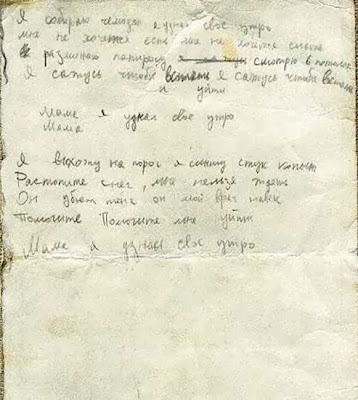 Я собираю чемодан я узнал свое утро
мне не хочется есть мне не хочется спать
разминаю папиросу смотрю в потолок
Я сажусь чтобы встать Я сажусь чтобы встать
и уйти
Мама я узнал свое утро
Мама
Я выхожу на порог я слышу стук копыт
Растопите снег, мне нельзя ждать
Он убьет меня он мой враг навек
Помогите Помогите мне уйти
Мама я узнаю свое утро